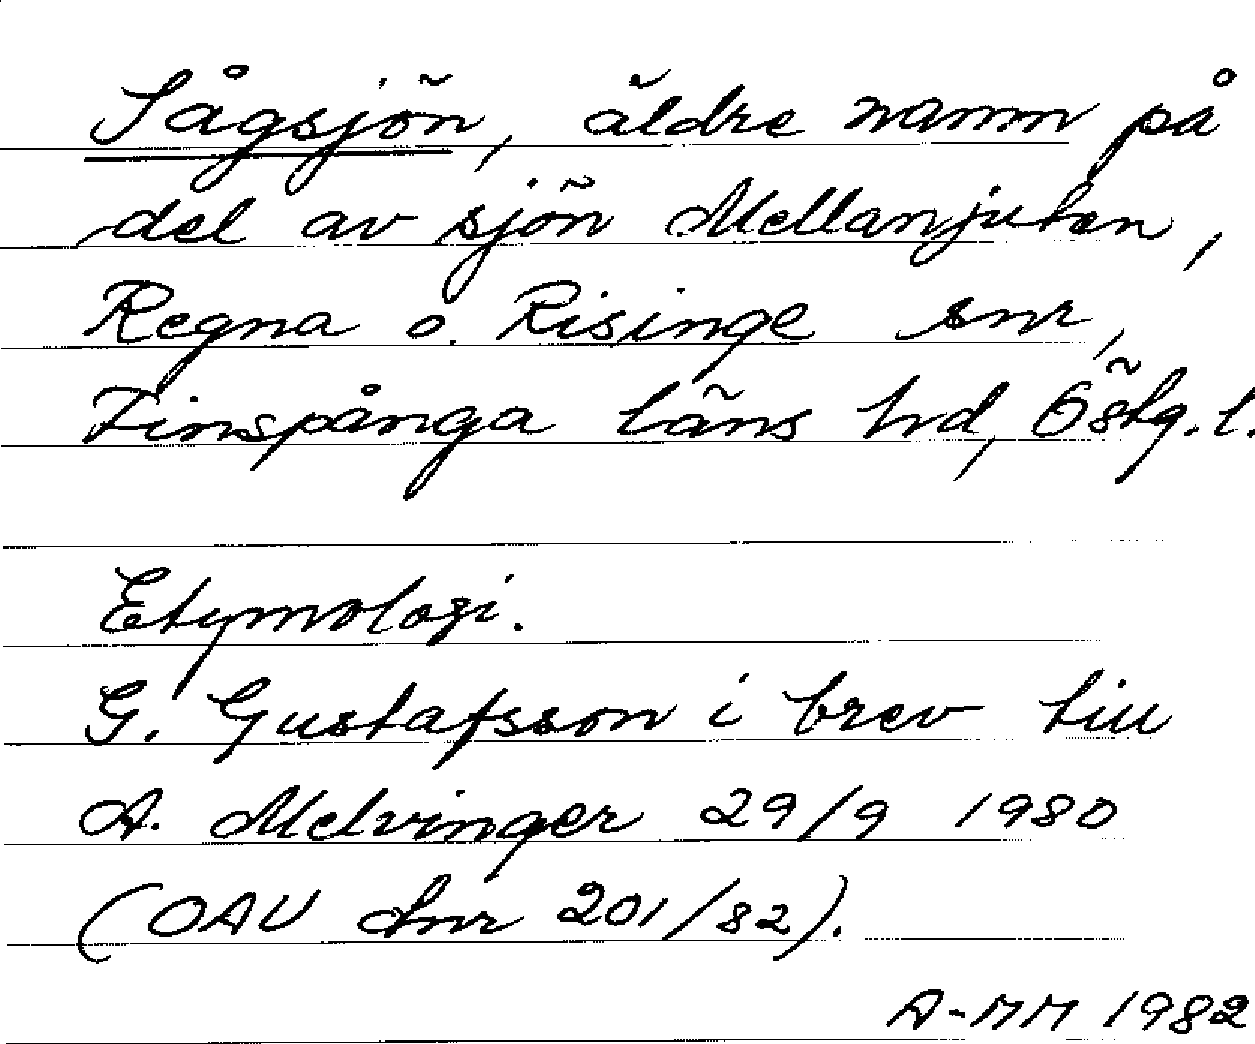 Sågsjön, äldre namn på
del av sjön Mellanjuten,
Regna o. Risinge snr,
Finspånga läns hd, Östg.l.
Etymologi.
G. Gustafsson i brev till
A. Melvinger 29/9 1980
(OAU dnr 201/82).
A-MM 1982